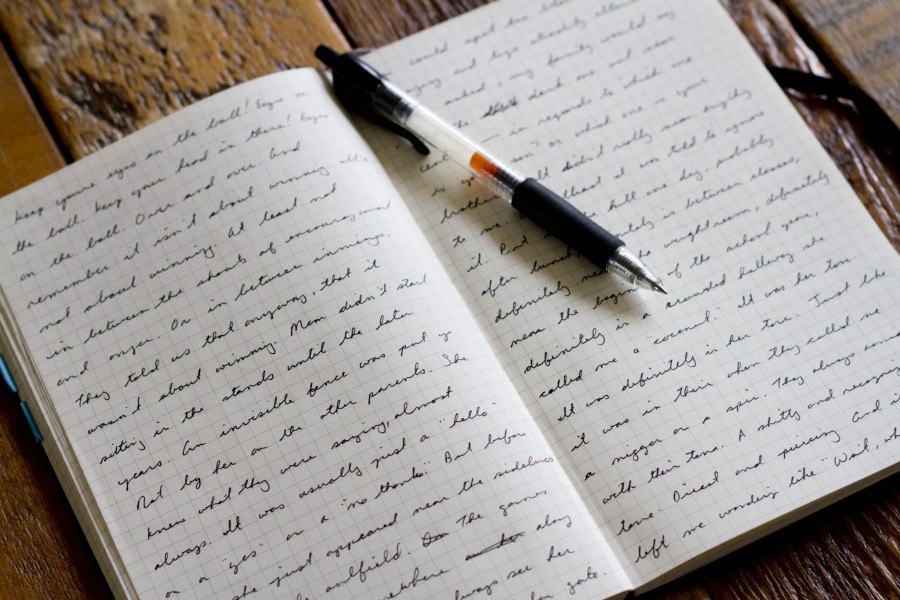 keep youre eyes on the ball! Eyes on
the ball. keep your head in there! Eyes
on the ball. Over and over and
remember it isn't about winning
not about winning. At least not
in between the shouts of encouragement
and anger. Or in between innings.
They told us that anyway, that it
wasn't about winning. Mom didn't start
sitting in the stands until the later
years. An invisible fence was put up
Not by her or the other parents. She
knew what they were saying, almost
always. It was usually just a "hello"
or a "yes" or a "no thanks." But before
she just appeared near the sidelines
The games
along
always see her
gate.
could
and legs
asked, my family would say
the dark one and
in regards to which one
or which one is your
didn't really mean anything
to me, at least it was told to ignore
it. But the hall one day, probably
after lunch is between classes,
definitely near the weightroom, definitely
near the beginning of the school year,
definitely in a crowded hallway she
called me a "coconut." It was her tone.
It was definitely in her tone. Just like
it was in their when they called me
a nigger or a spic. They always
with their tone. A shitty and
tone. Direct and piercing And it
left me wondering like "Wait,